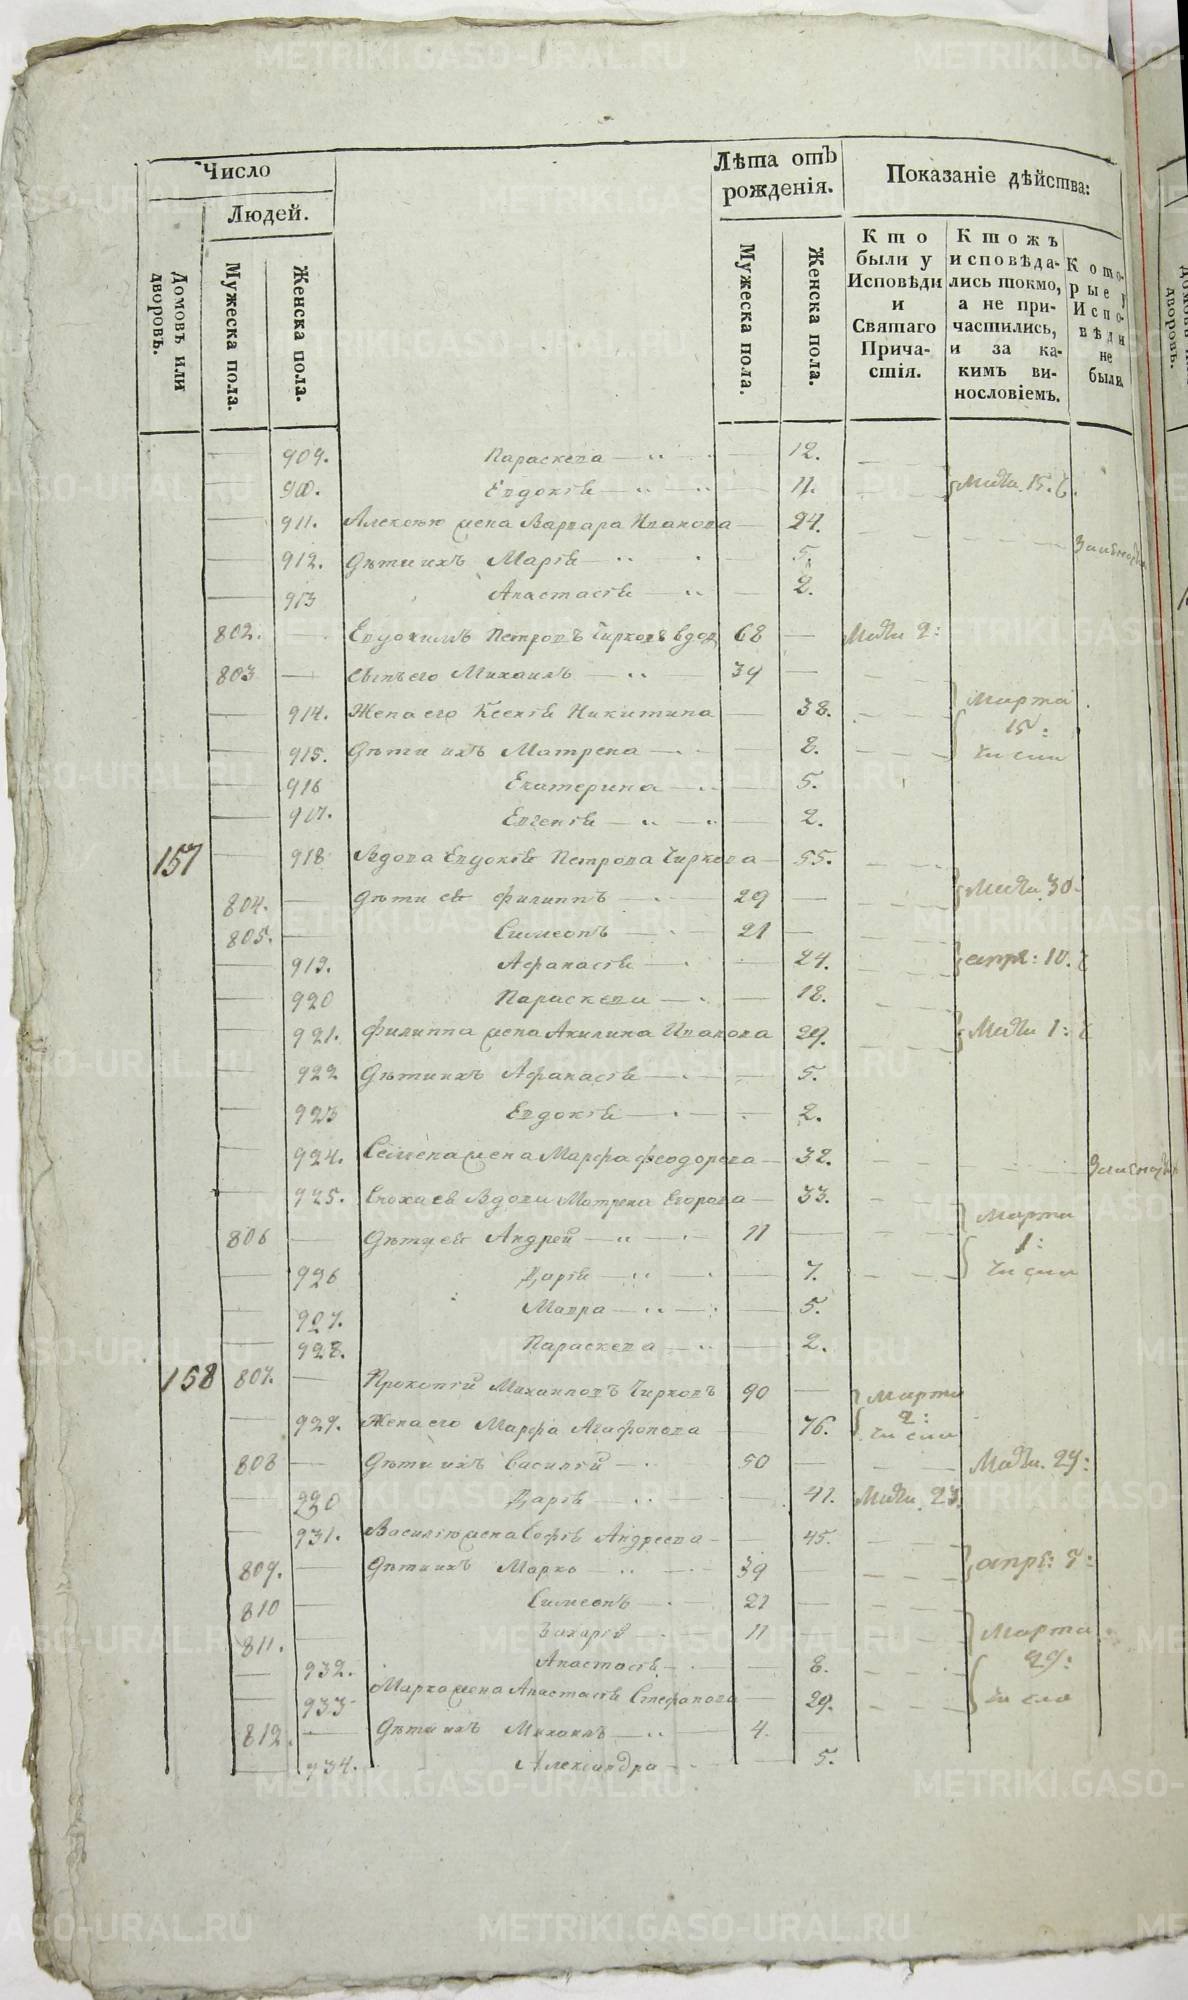 Число
Лѣта отъ рожденія.
Показаніе дѣйства:
Людей.
Домовъ или дворовъ.
Мужеска пола.
Женска пола.
Мужеска пола.
Женска пола.
Кто были у Исповѣди и Святаго Причастія.
Ктожъ исповѣдались токмо, а не причастились, и за какимъ винословіемъ.
Которые у Исповѣди не были
909. Параскева 12.
910. Евдокія 11. 15.
911. Алексѣю жена Варвара Иванова 24.
912. Дѣти ихъ Марія 5.
913 Анастасія 2.
802. Евдокимъ Петровъ Чирковъ вдов 68 2:
803 Сынъ его Михаилъ 39
914. Жена его Ксенія Никитина 38. Марта 15: числа
915. Дѣти ихъ Матрена 8.
916 Екатерина 5.
917. Евгенія 2.
157 918 Вдова Евдокія Петрова Чиркова 55.
804. Дѣти ея Филиппъ 29 30
805. Симеонъ 21
919. Афанасія 24. апре: 10.
920 Параскева 18.
921. Филиппа жена Акилина Иванова 29. 1:
922 Дѣти ихъ Афанасія 5.
923 Евдокія 2.
924. Семена жена Марфа Феодорова 32.
925. Сноха ея Вдова Матрена Егорова 33. Марта 1: числа
806 Дѣти ея Андрей 11
926 Дарія 7.
927. Мавра 5.
928. Параскева 2.
158 807. Прокопій Михаиловъ Чирковъ 90 Марта 2: числа
929. Жена его Марфа Агафонова 76.
808 Дѣти ихъ Василій 50 29:
930 Дарія 41. 23.
931. Василію жена Софія Андреева 45.
809. Дѣти ихъ Марко 39 апре: 7:
810 Симеонъ 21
811. Захарій 11 Марта 29: числа
932. Анастасія 8.
933 Марко жена Анастасія Стефанова 29.
812. Дѣти ихъ Михаилъ 4.
934. Александра 5.
METRIKI.GASO-URAL.RU